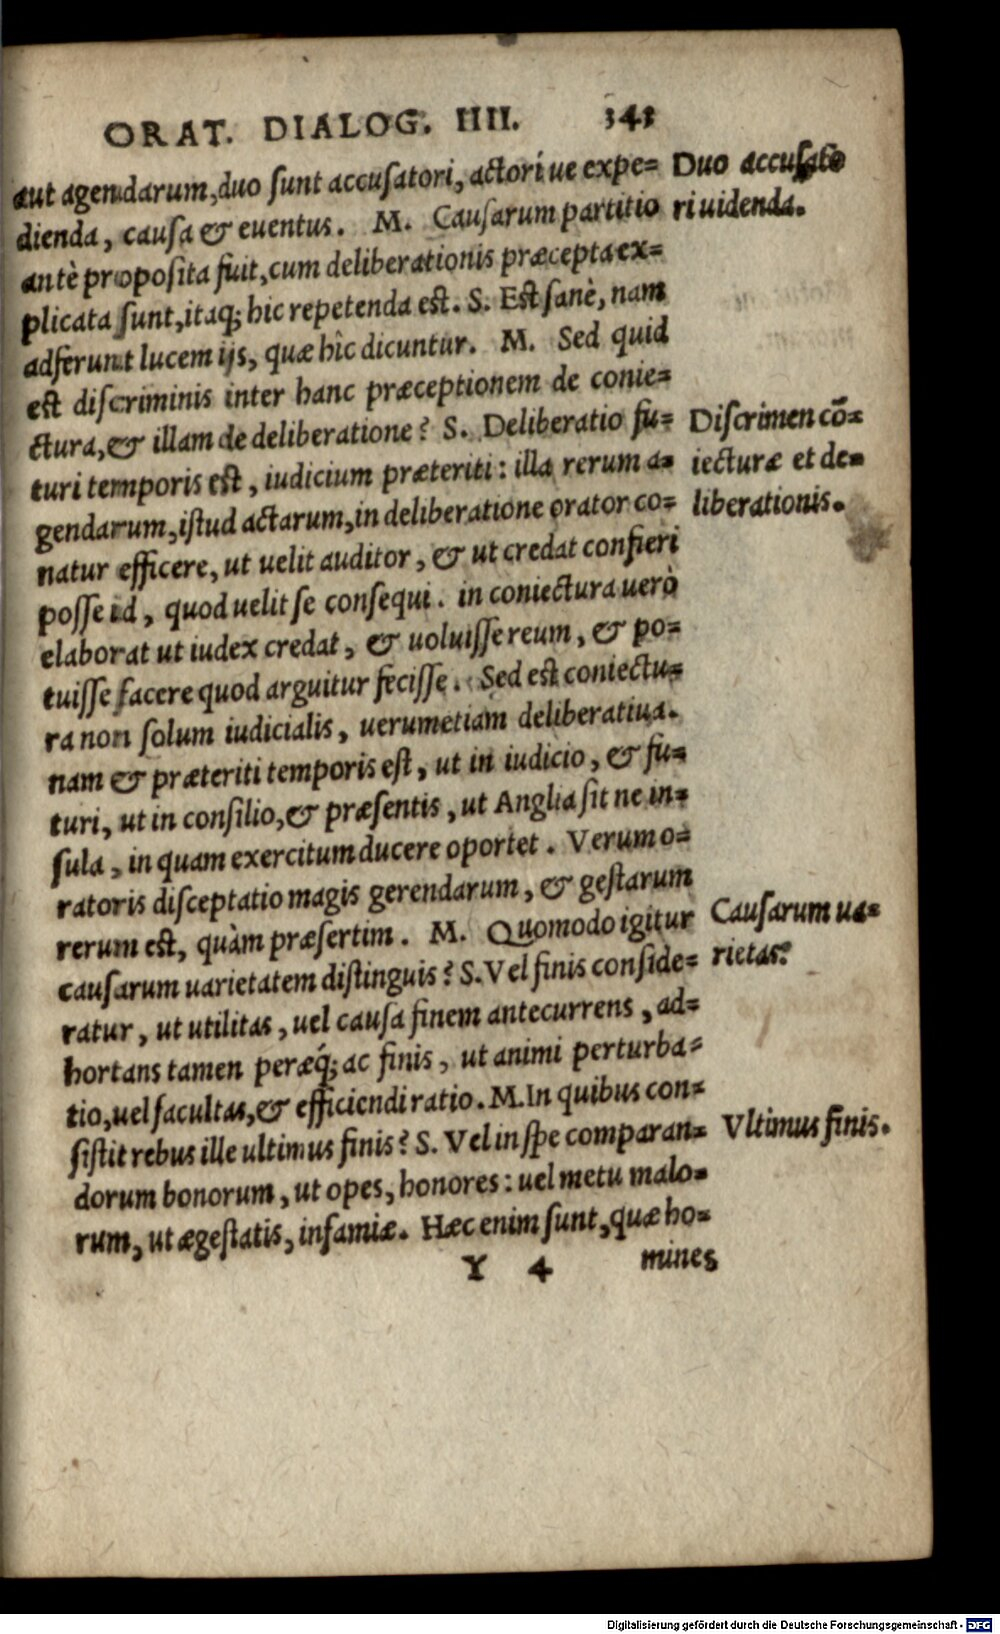 ORAT. DIALOG. IIII. 343
aut agendarum, duo ſunt accuſatori, actoríue expe-
dienda, cauſa & euentus. M. Cauſarum partitio
antè propoſita fuit, cum deliberationis præcepta ex-
plicata ſunt, itaq; hic repetenda eſt. S. Eſt ſanè, nam
adferunt lucem ijs, quæ hîc dicuntur. M. Sed quid
eſt diſcriminis inter hanc præceptionem de conie-
ctura, & illam de deliberatione? S. Deliberatio fu-
turi temporis eſt, iudicium præteriti: illa rerum a-
gendarum, iſtud actarum, in deliberatione orator co-
natur efficere, ut uelit auditor, & ut credat confieri
poſſe id, quod uelit ſe conſequi. in coniectura uerò
elaborat ut iudex credat, & uoluiſſe reum, & po-
tuiſſe facere quod arguitur feciſſe. Sed eſt coniectu-
ra non ſolum iudicialis, uerumetiam deliberatiua.
nam & præteriti temporis eſt, ut in iudicio, & fu-
turi, ut in conſilio, & præſentis, ut Anglia ſit ne in-
ſula, in quam exercitum ducere oportet. Verum o-
ratoris diſceptatio magis gerendarum, & geſtarum
rerum eſt, quàm præſertim. M. Quomodo igitur
cauſarum uarietatem diſtinguis? S. Vel finis conſide-
ratur, ut utilitas, uel cauſa finem antecurrens, ad-
hortans tamen peræq́; ac finis, ut animi perturba-
tio, uel facultas, & efficiendi ratio. M. In quibus con-
ſiſtit rebus ille ultimus finis? S. Vel in ſpe comparan-
dorum bonorum, ut opes, honores: uel metu malo-
rum, ut ægeſtatis, infamiæ. Hæc enim ſunt, quæ ho-
Y 4 mines
Duo accuſato
ri uidenda.
Diſcrimen cō-
iecturæ et de-
liberationis.
Cauſarum ua-
rietas.
Vltimus finis.
Digitalisierung gefördert durch die Deutsche Forschungsgemeinschaft - DFG